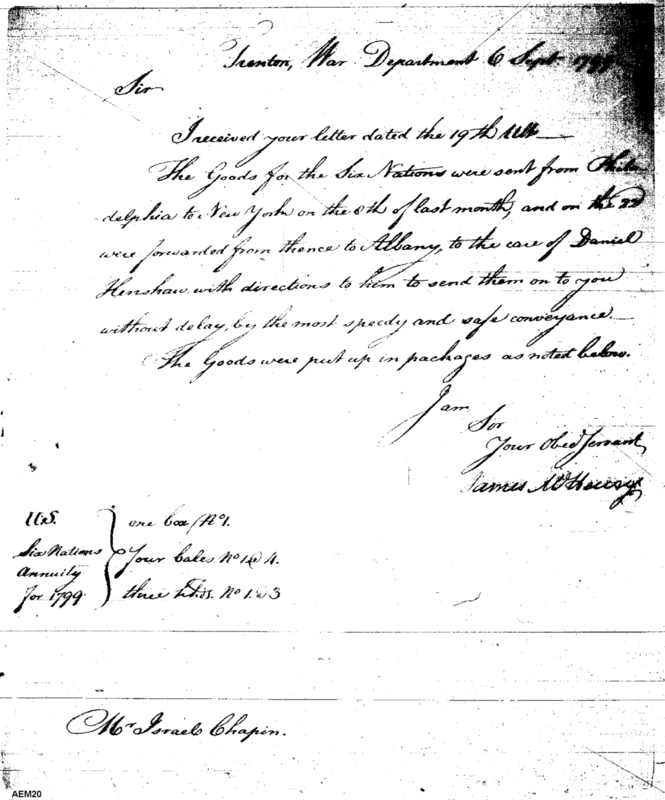 Trenton, War Department 6 Sept. 1799
Sir
I received your letter dated the 19th Ult
The Goods for the Six Nations were sent from Phila
delphia to New York on the 8th of last month, and on the 22
were forwarded from thence to Albany, to the care of Daniel
Henshaw with directions to him to send them on to you
without delay, by the most speedy and safe conveyance
The Goods were put up in packages as noted below.
I am
Sir
Your Obed Servant
James McHenry
U.S. one box No 1.
Six Nations four bales No 1 @ 4.
Annuity
for 1799 three hhds. No 1 @ 3
Mr Israel Chapin.
AEM20